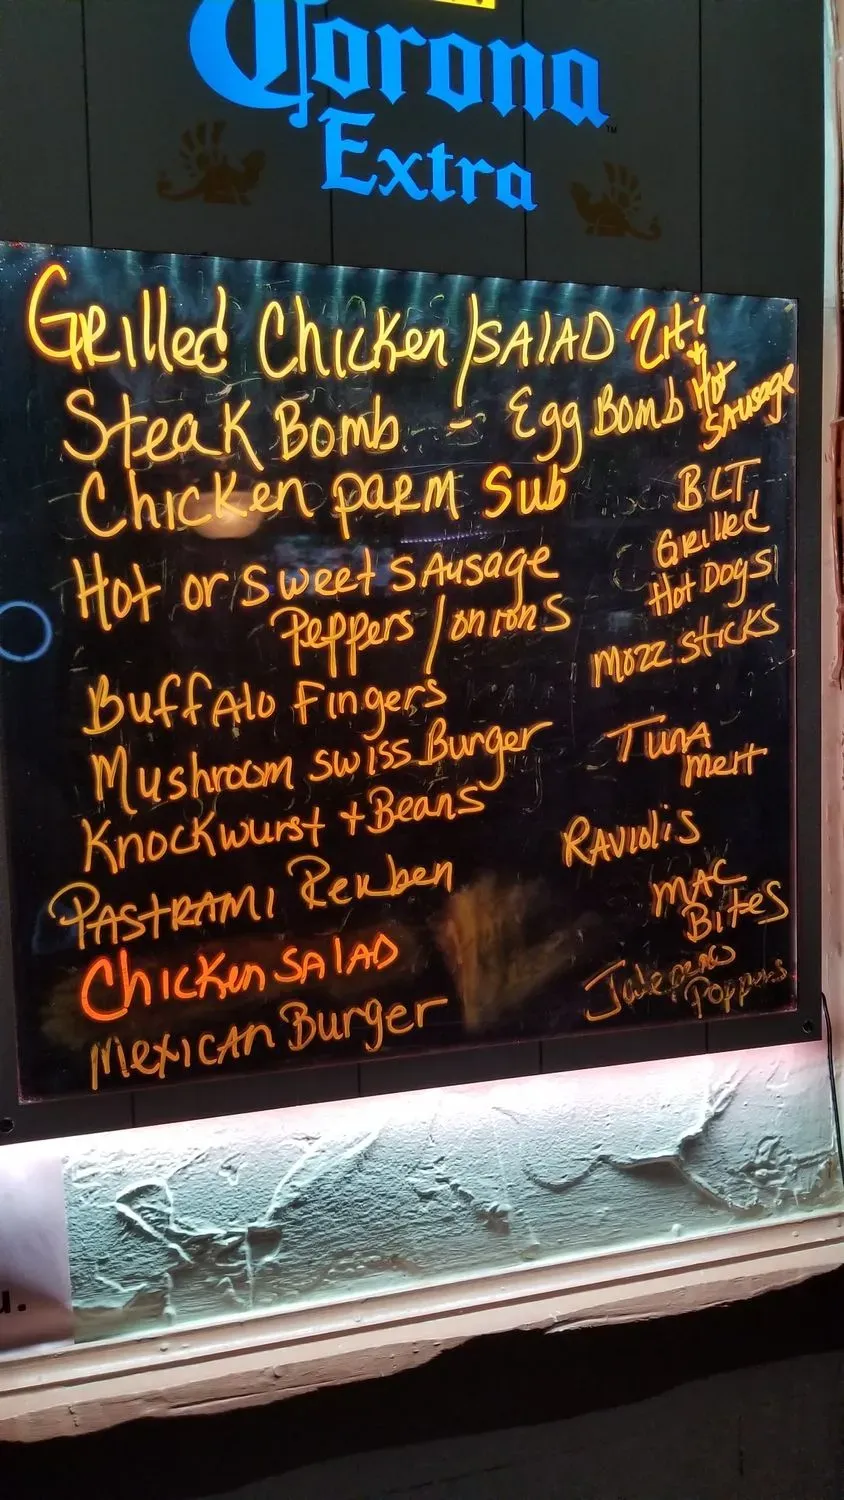 Corona
Extra
™
Grilled Chicken / SALAD ZiTi
+ Hot
Sausage
Steak Bomb - Egg Bomb
Chicken parm Sub
BLT
Hot or sweet sausage
Peppers / onions
Grilled
Hot Dogs
Mozz sticks
Buffalo Fingers
Mushroom swiss Burger
Tuna
melt
Knockwurst + Beans
Raviolis
PASTRAMI Reuben
MAC
Bites
Chicken SALAD
Mexican Burger
Poppers
u.